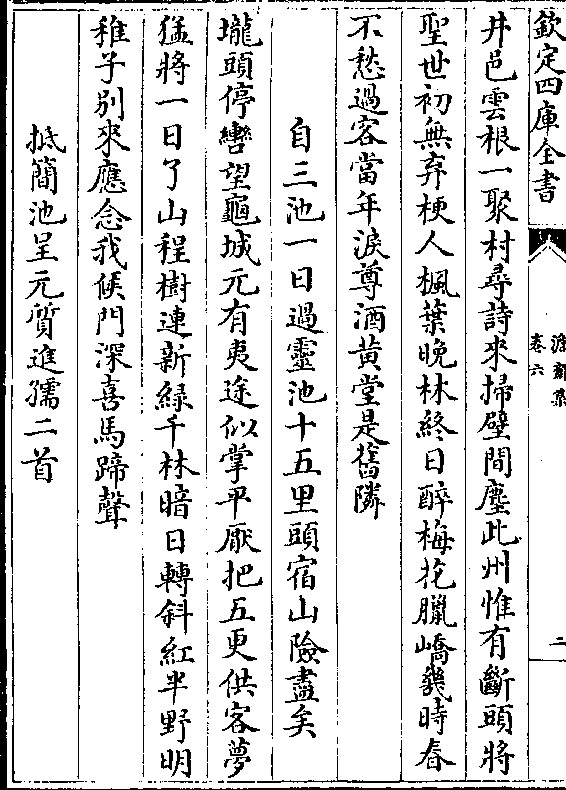 欽定四庫全書
卷六
二
井邑雲根一聚村尋詩來掃壁間塵此州惟有斷頭將
聖世初無弃梗人楓葉晚林終日醉梅花臘嶠幾時春
不愁過客當年淚尊酒黄堂是舊隣
自三池一日過靈池十五里頭宿山險盡矣
壠頭停轡望龜城元有夷途似掌平厭把五更供客夢
猛將一日了山程樹連新緑千林暗日轉斜紅半野明
稚子别來應念我候門深喜馬蹄聲
抵簡池呈元質進孺二首